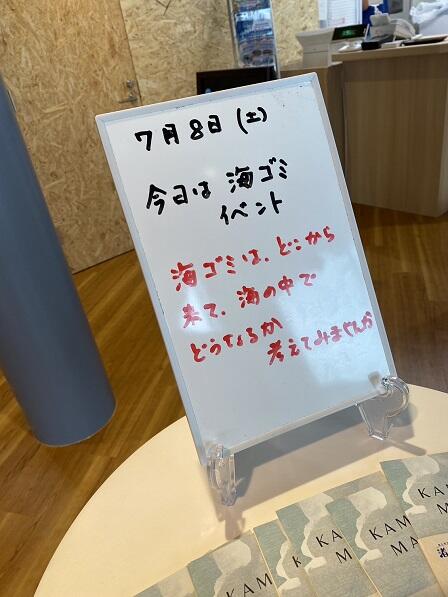 7月8日(土)
今日は 海ゴミ
イベント
海ゴミは、どこから
来て、海の中で
どうなるか
考えてみませんか
KAM
MA
KAM
MA
KAM
MA
KAM